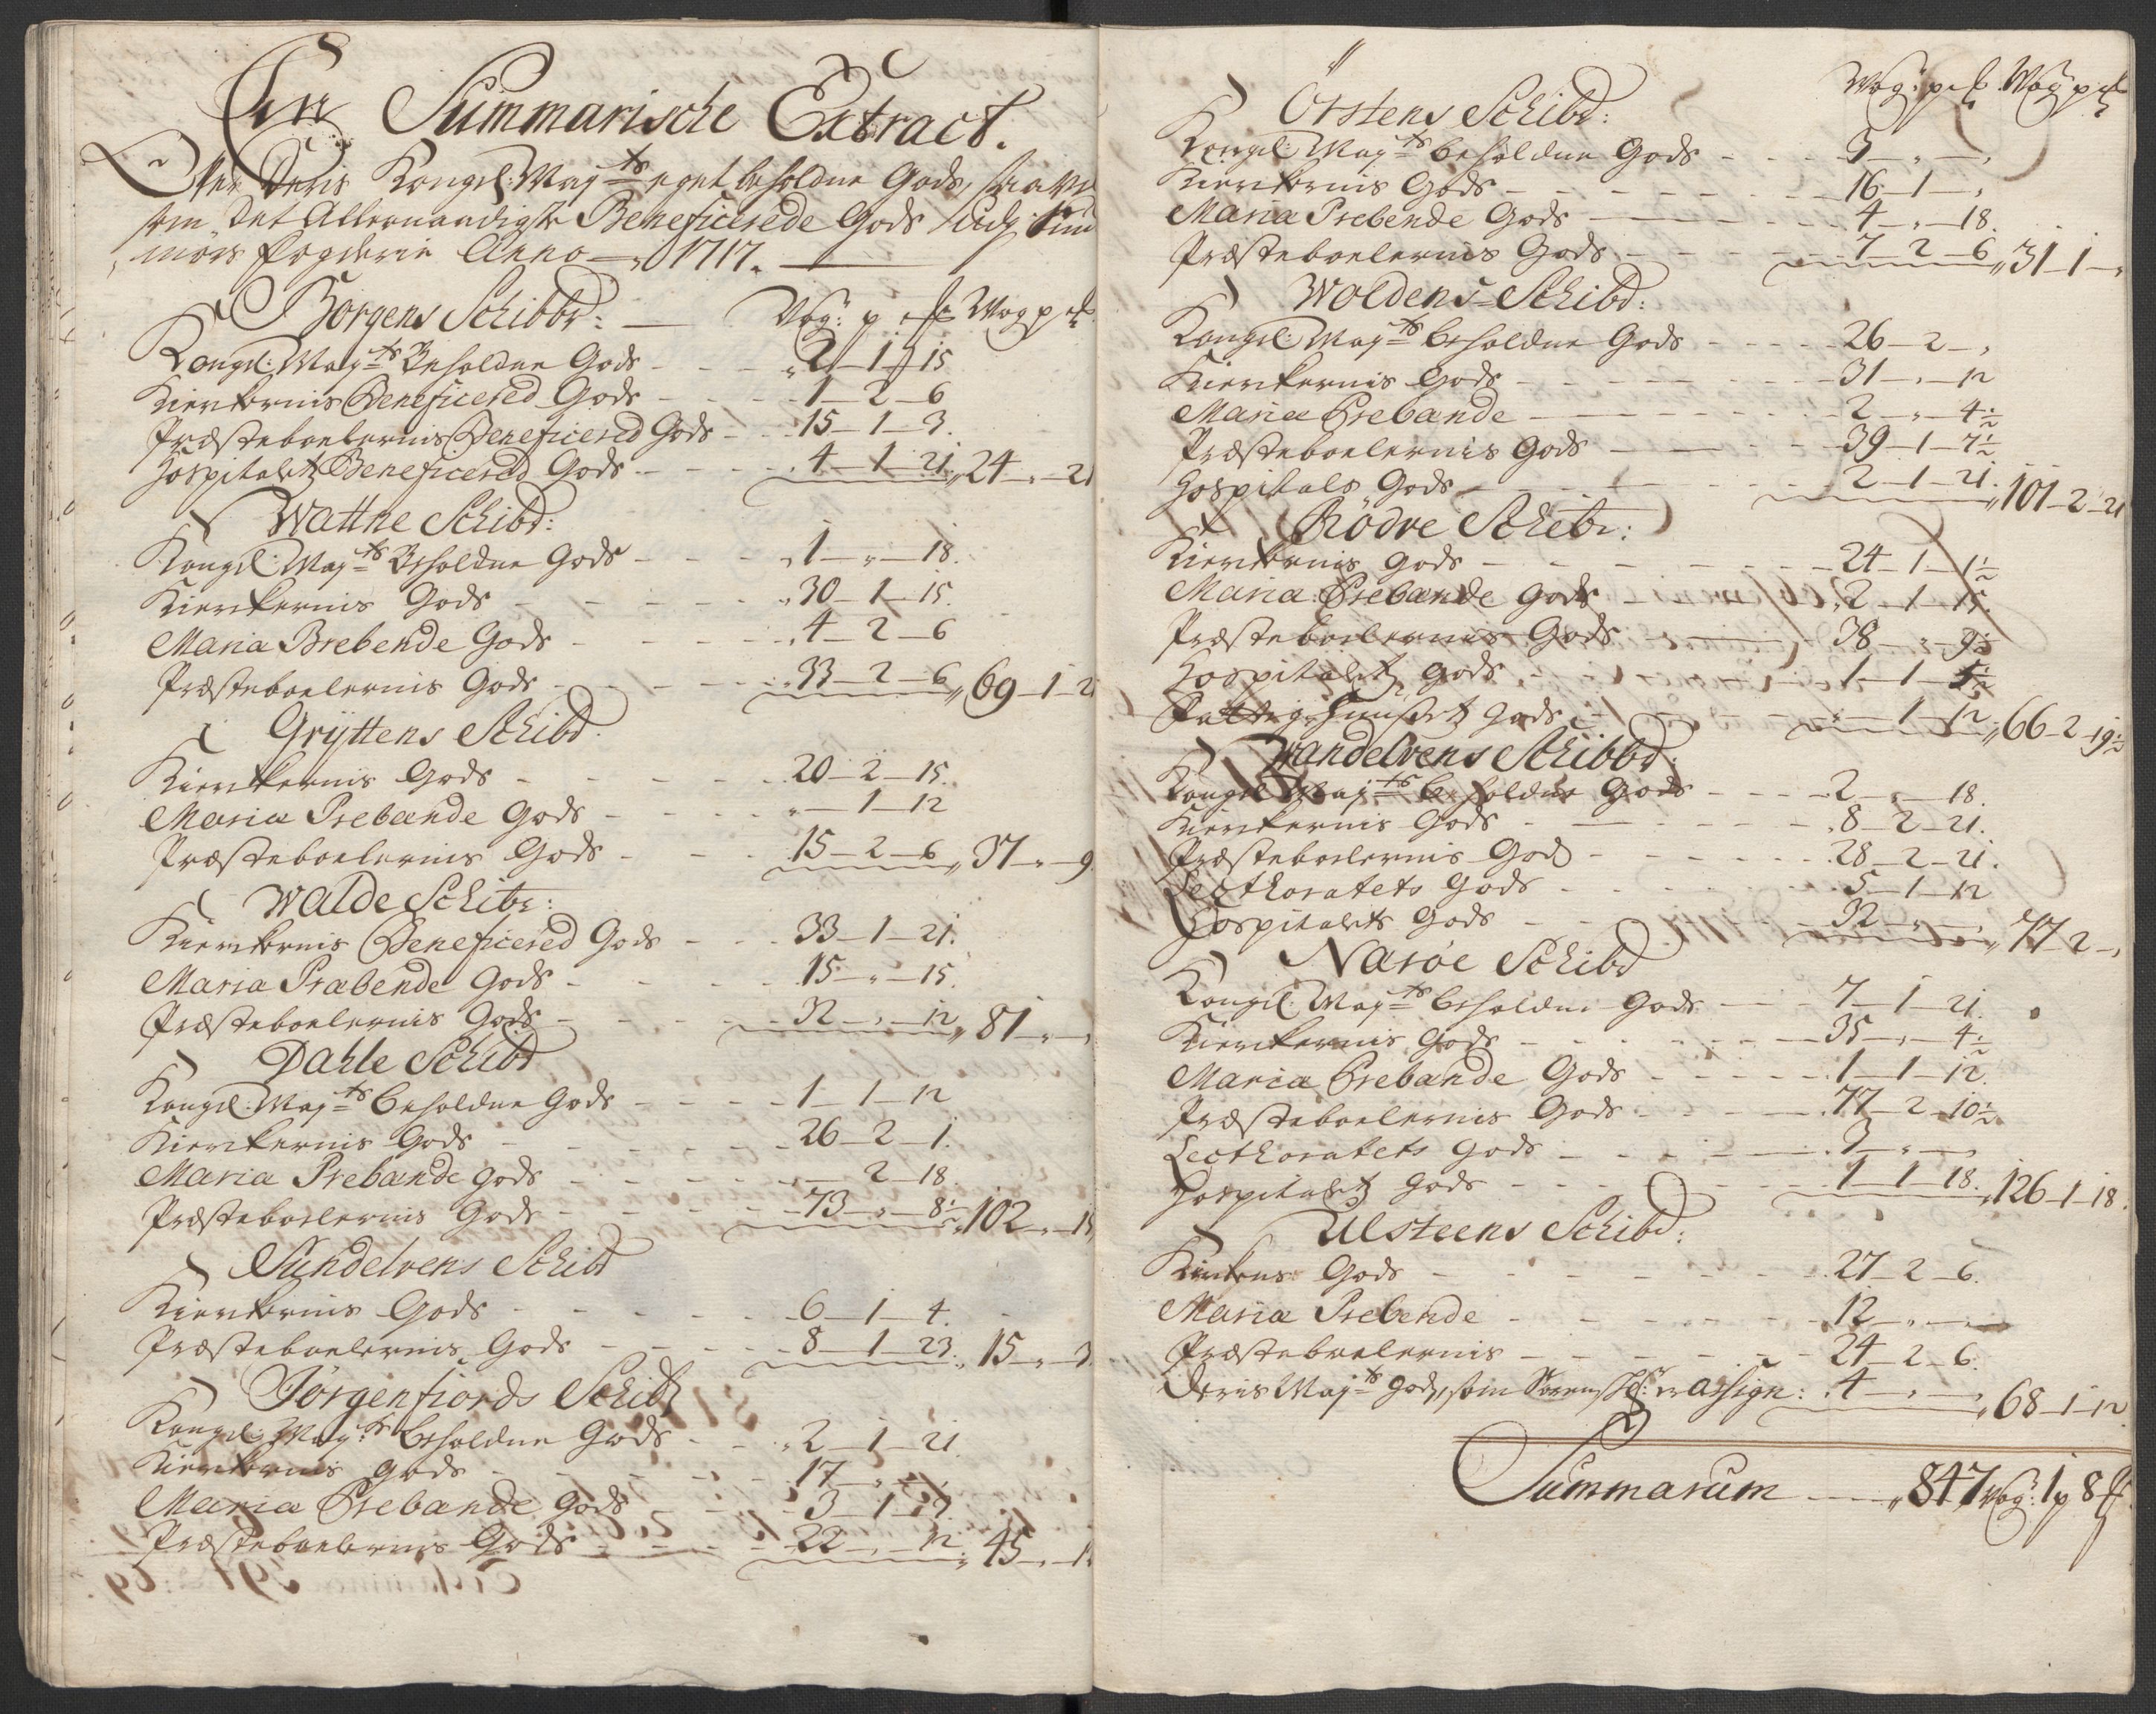 En Summarische Extract.
Ofver Deris Kongel: May:ts eget beholdne Gods, saavel
som Det Allernaadigste Beneficerede Gods udj Sund-
mørs fogderie Anno 1717.
Borgens Schibbr: — Vog: p ℔ Wog p ℔
Kongel: May:ts Beholdne Gods - - - 2 - 1 - 15
Kierckernis Beneficered Gods - - - 1 - 2 - 6
Præsteboelernis Beneficered Gods - - 15 - 1 - 3.
Hospitaletz Beneficered Gods - - - 4 - 1 - 21. 24 - " - 21
Wattne Schibd:
Kongel: May:ts Beholdne Gods - - - 1 - " - 18.
Kierckernis Gods - - - 30 - 1 - 15.
Maria Brebende Gods - - - 4 - 2 - 6
Præsteboelernis Gods - - - 33 - 2 - 6 " 69 - 1 - 2
Gryttens Schibd:
Kierckernis Gods - - - 20 - 2 - 15.
Maria Prebende Gods - - - " - 1 - 12
Præsteboelernis Gods - - - 15 - 2 - 6 " 37 - " - 9.
Walde Schibr:
Kierckernis Beneficered Gods - - - 33 - 1 - 21.
Maria Præbende Gods - - - 15 - " - 15.
Præsteboelernis Gods - - - 32 - " - 12 " 81 - " -
Dahle Schibd
Kongel: May:ts beholdne Gods - - - 1 - 1 - 12
Kierckernis Gods - - - 26 - 2 - 1.
Maria Prebande Gods - - - 2 - 18.
Præsteboelernis Gods - - - 73 - " - 8½ " 102 - " - 15
Sundelvens Schibd
Kierckernis Gods - - - 6 - 1 - 4.
Præsteboelernis Gods - - - 8 - 1 - 23. " 15 - " - 3
Jörgenfiords Schibd
Kongel: May:ts beholdne Gods - - - 2 - 1 - 21
Kierckernis Gods - - - 17 - " - 21.
Maria Prebande Gods - - - 3 - 1 -
Præsteboelernis Gods - - - 22 - " - 12. " 45 - " - 1
Wog: p ℔ Wog p ℔
Örstens Schibd:
Kongel: May:ts beholdne Gods - - - 3 - " - "
Kierckernis Gods - - - 16 - 1 - "
Maria Prebende Gods - - - 4 - " - 18.
Præsteboelernis Gods - - - 7 - 2 - 6 " 31 - 1 - "
Woldens Schibd:
Kongel: May:ts beholdne Gods - - - 26 - 2 - "
Kierckernis Gods - - - 31 - " - 12
Mariæ Prebande - - - 2 - " - 4½
Præsteboelernis Gods - - - 39 - 1 - 7½
Hospitals Gods - - - 2 - 1 - 21. " 101 - 2 - 21
Rödve Schibr:
Kierckernis Gods - - - 24 - 1 - 1½
Maria Prebande Gods - - - 2 - 1 - 15.
Præsteboelernis Gods - - - 38 - " - 9½
Hospitaletz Gods - - - 1 - 1 - 5½
Fattighuusetz Gods - - - " - 1 - 12 " 66 - 2 - 19½
Wandelvens Schibbd:
Kongel May:ts beholdne Gods - - - 2 - " - 18.
Kierckernis Gods - - - 8 - 2 - 21.
Præsteboelernis Gods - - - 28 - 2 - 21.
Lecthoratets Gods - - - 5 - 1 - 12
Hospitalets Gods - - - 32 - " - " " 77 - 2 - "
Naröe Schibd
Kongel: May:ts beholdne Gods - - - 7 - 1 - 21.
Kierckernis Gods - - - 35 - " - 4½
Maria Prebande Gods - - - 1 - 1 - 12.
Præsteboelernis Gods - - - 77 - 2 - 10½
Lecthoratets Gods - - - 3 - " -
Hospitaletz Gods - - - 1 - 1 - 18. " 126 - 1 - 18.
Ulsteens Schibd:
Kirckens Gods - - - 27 - 2 - 6.
Maria Prebende - - - 12 - " -
Præsteboelernis - - - 24 - 2 - 6.
Deris May:ts Gods, som er assign: 4 - " - " " 68 - 1 - 12
Summarum — " 847 Wog: 1 p 8 ℔